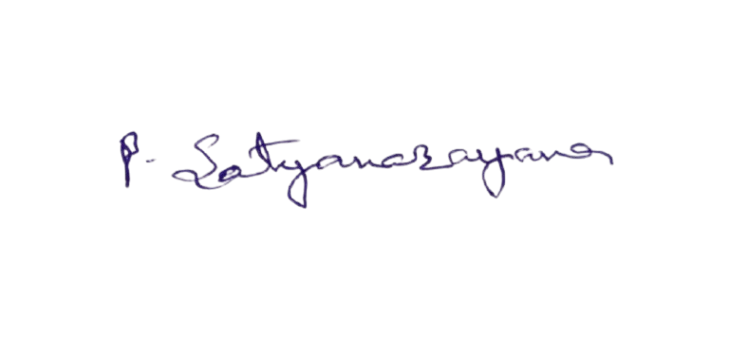 P. Satyanarayana